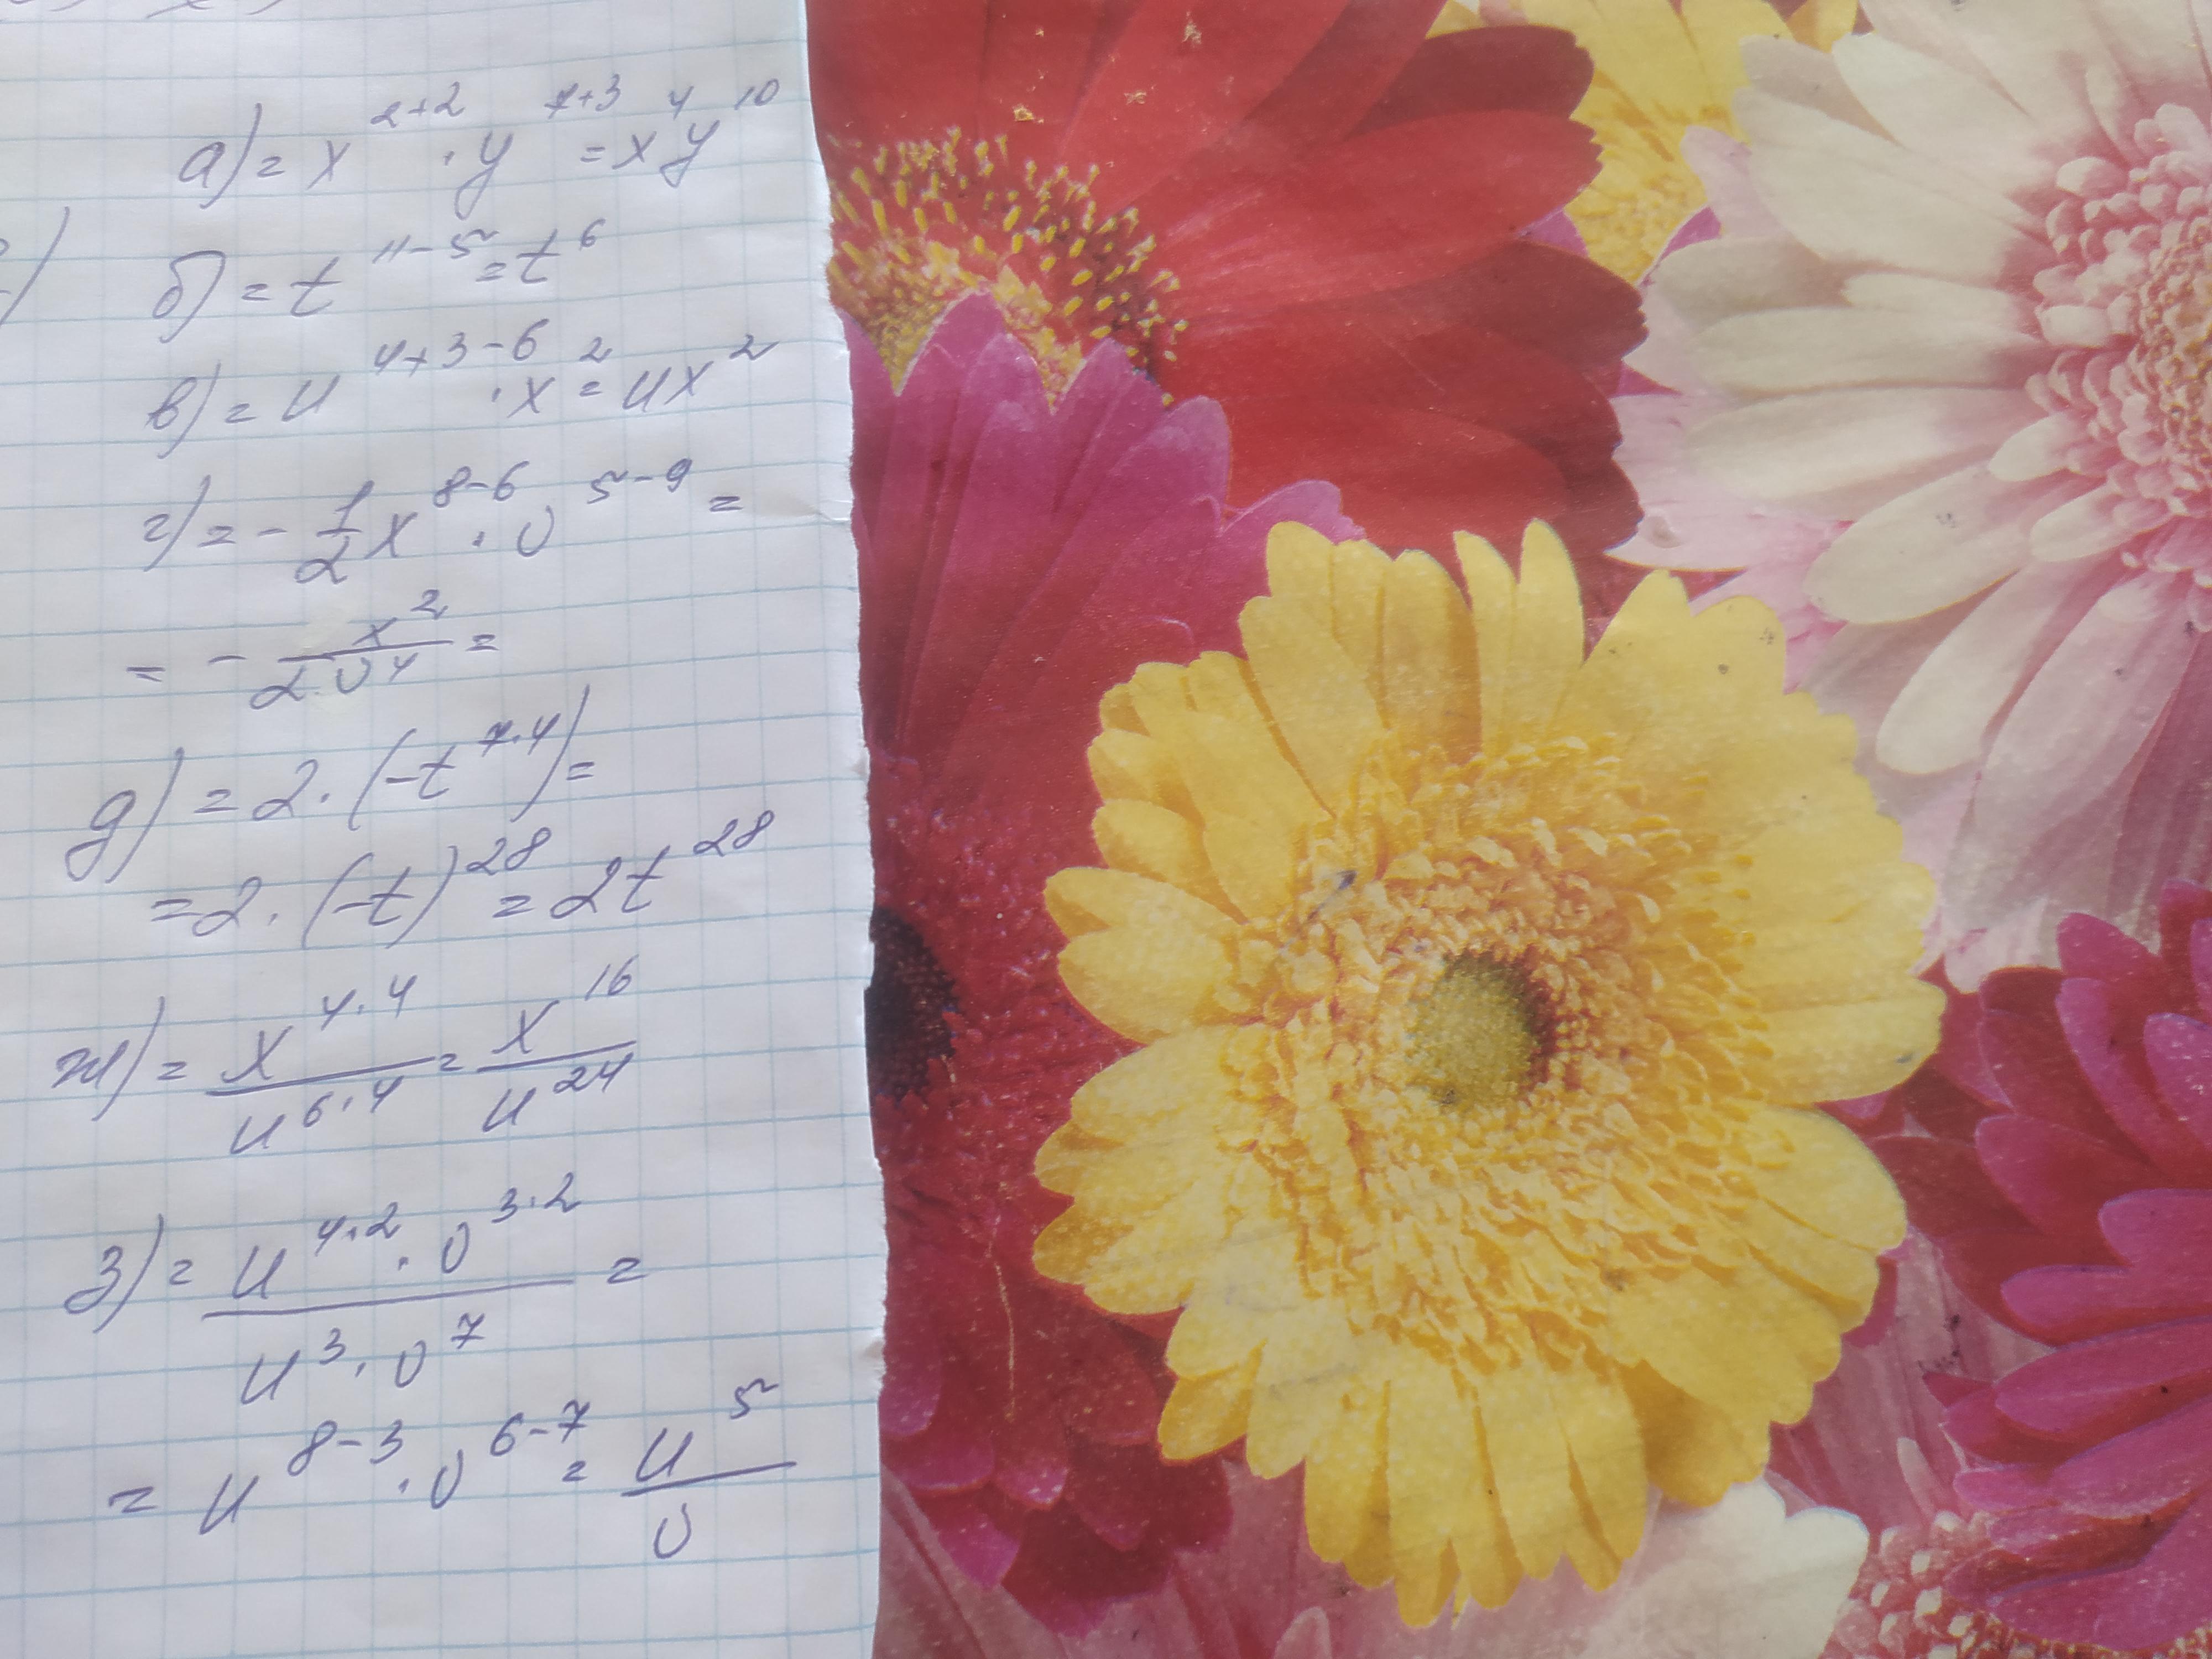 а) = x^{2+2} · y^{7+3} = x^4 y^{10}
б) = t^{11-5} = t^6
в) = u^{4+3-6} · x^2 = ux^2
г) = - \frac{1}{2} x^{8-6} · v^{5-9} =
= - \frac{x^2}{2·v^4} =
д) = 2 · (-t^{7·4}) =
= 2 · (-t)^{28} = 2t^{28}
ж) = \frac{x^{4·4}}{u^{6·4}} = \frac{x^{16}}{u^{24}}
з) = \frac{u^{4·2} · v^{3·2}}{u^3 · v^7} =
= u^{8-3} · v^{6-7} = \frac{u^5}{v}